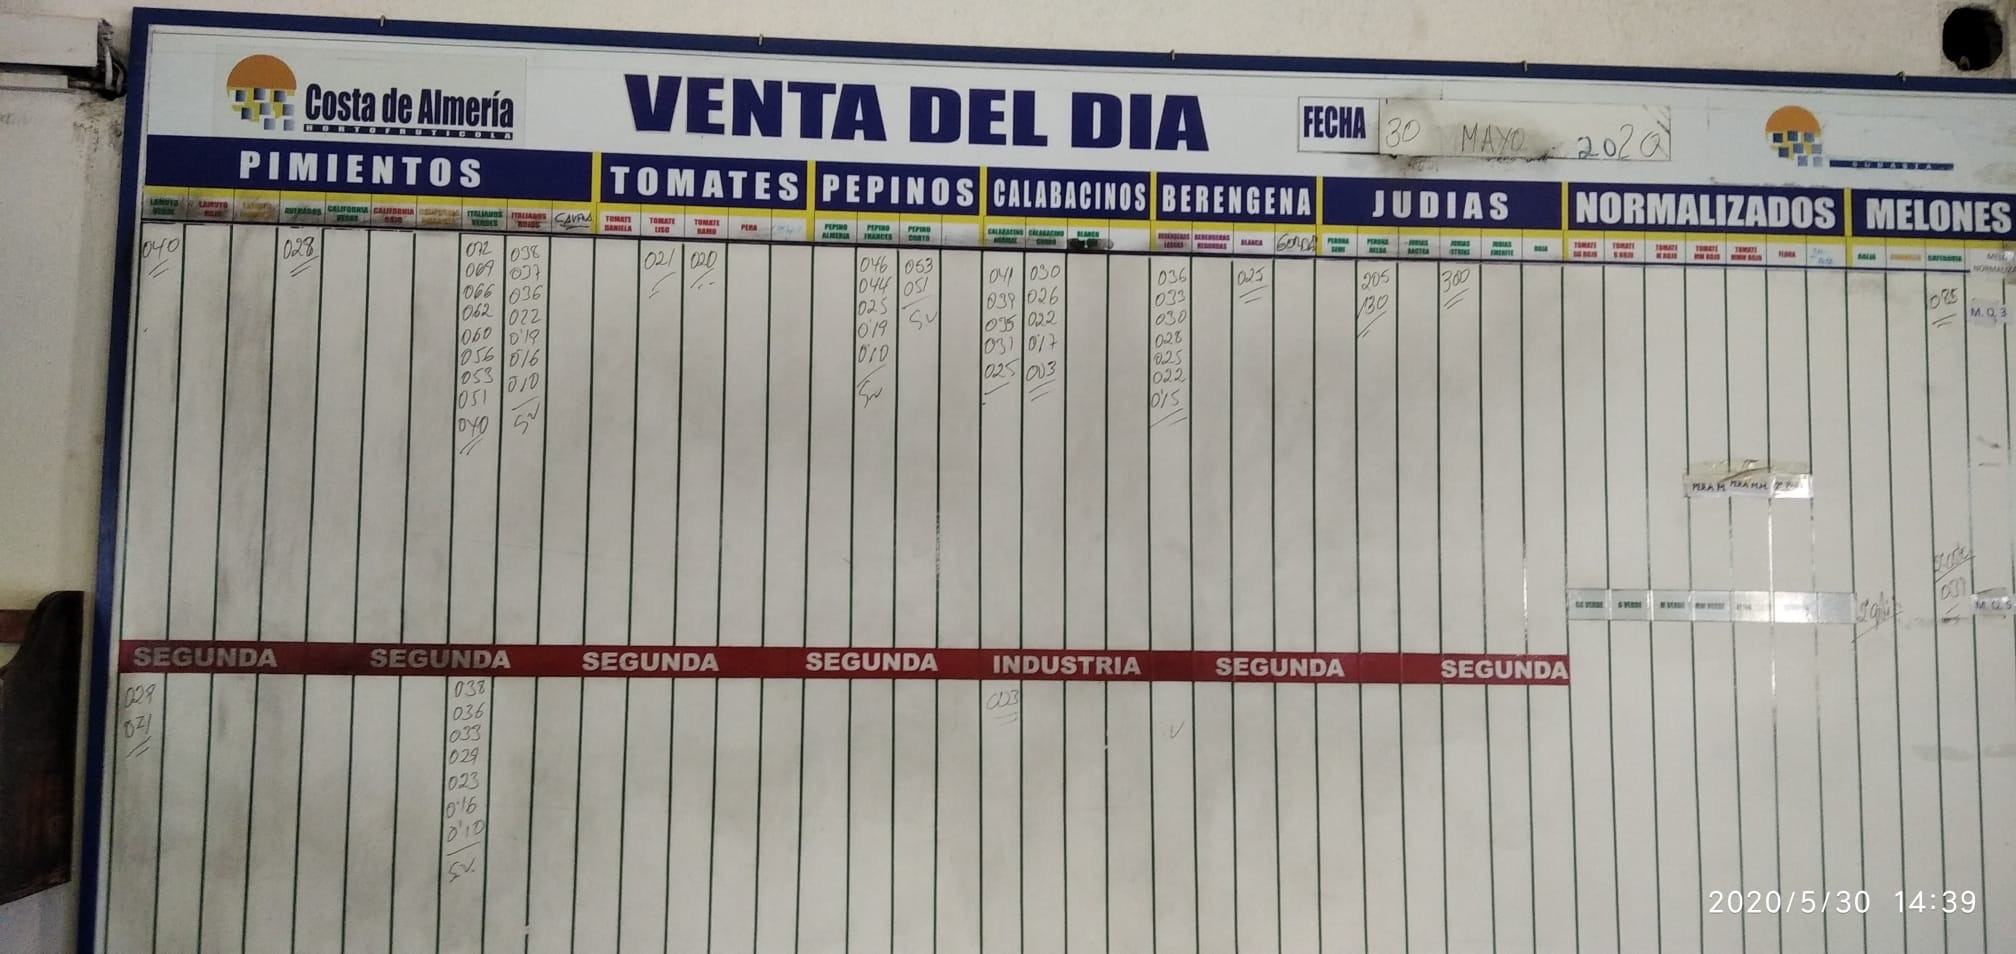 Costa de Almería
HORTOFRUTICOLA
VENTA DEL DIA
FECHA 30 MAYO 2020
SUBASTA
PIMIENTOS TOMATES PEPINOS CALABACINOS BERENGENA JUDIAS NORMALIZADOS MELONES
LAMUYO VERDE
LAMUYO ROJO
CALIFORNIA VERDE
CALIFORNIA ROJO
ITALIANOS VERDES
ITALIANOS ROJOS
TOMATE DANIELA
TOMATE LISO
TOMATE RAMO
PERA
PEPINO ALMERIA
PEPINO FRANCES
PEPINO CORTO
CALABACINO GORDO
BLANCO
BERENGENAS LARGAS
BERENGENAS REDONDAS
BLANCA
GORDA
PERONA SEMI
PERONA HELDA
JUDIAS RASTRA
JUDIAS STRIKE
JUDIAS EMERITE
ROJA
TOMATE GG ROJO
TOMATE G ROJO
TOMATE M ROJO
TOMATE MM ROJO
TOMATE MMM ROJO
FLORA
GALIA
CATEGORIA
NORMALIZ
040
028
072
069
066
062
060
056
053
051
040
038
037
036
022
0'19
0'16
010
SV
021
020
046
044
025
0'19
0'10
SV
053
051
SV
041
039
035
031
025
030
026
022
0'17
003
036
033
030
028
025
022
0'15
025
205
130
300
085
M. Q. 3
PERA M PERA M.M.
GG VERDE G VERDE M VERDE MM VERDE
M. Q. 5
SEGUNDA SEGUNDA SEGUNDA SEGUNDA INDUSTRIA SEGUNDA SEGUNDA
029
021
038
036
033
029
023
0'16
0'10
SV.
003
2020/5/30 14:39